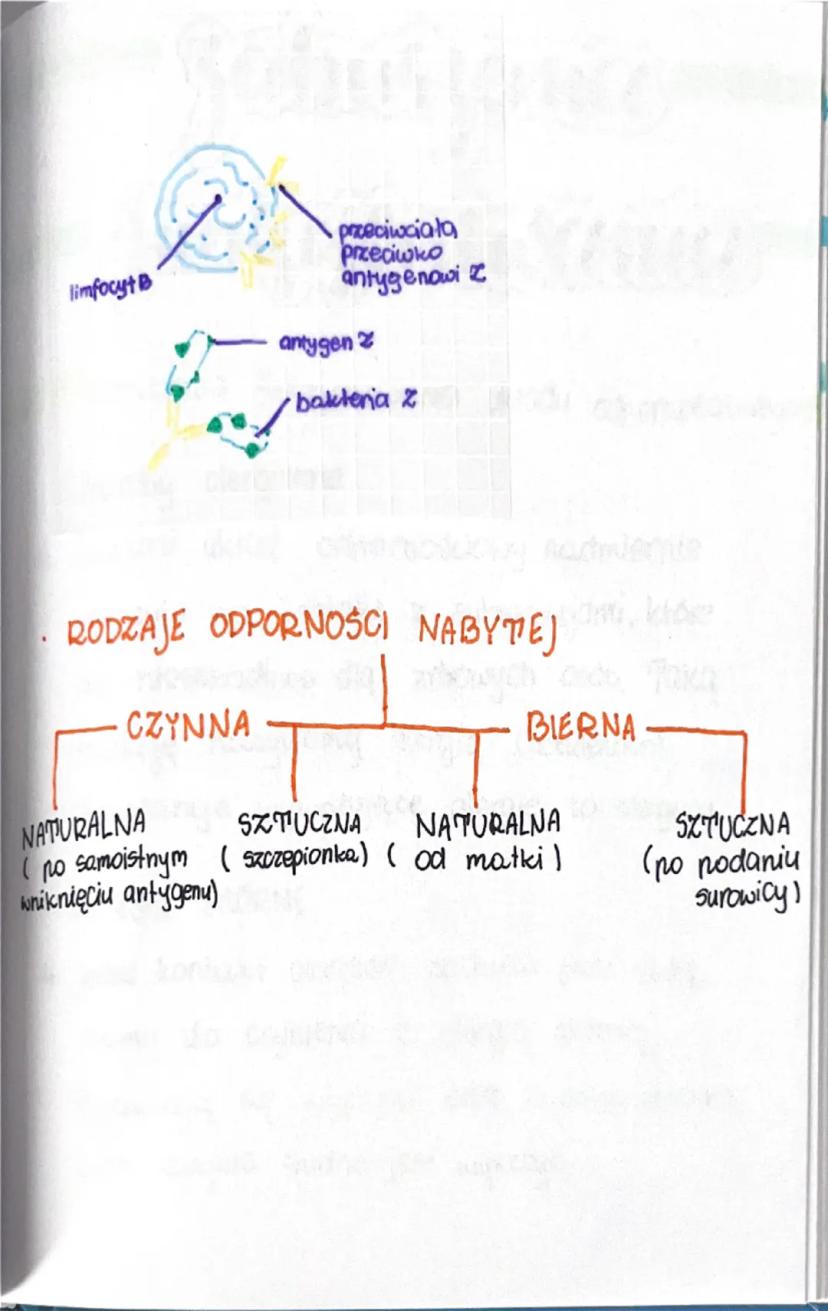 limfocyt B
przeciwciała
przeciwko
antygenowi Z
antygen Z
bakteria Z
• RODZAJE ODPORNOŚCI NABYTEJ
CZYNNA
BIERNA
NATURALNA
( po samoistnym
wniknięciu antygenu)
SZTUCZNA
( szczepionka)
NATURALNA
( od matki )
SZTUCZNA
(po podaniu
surowicy)